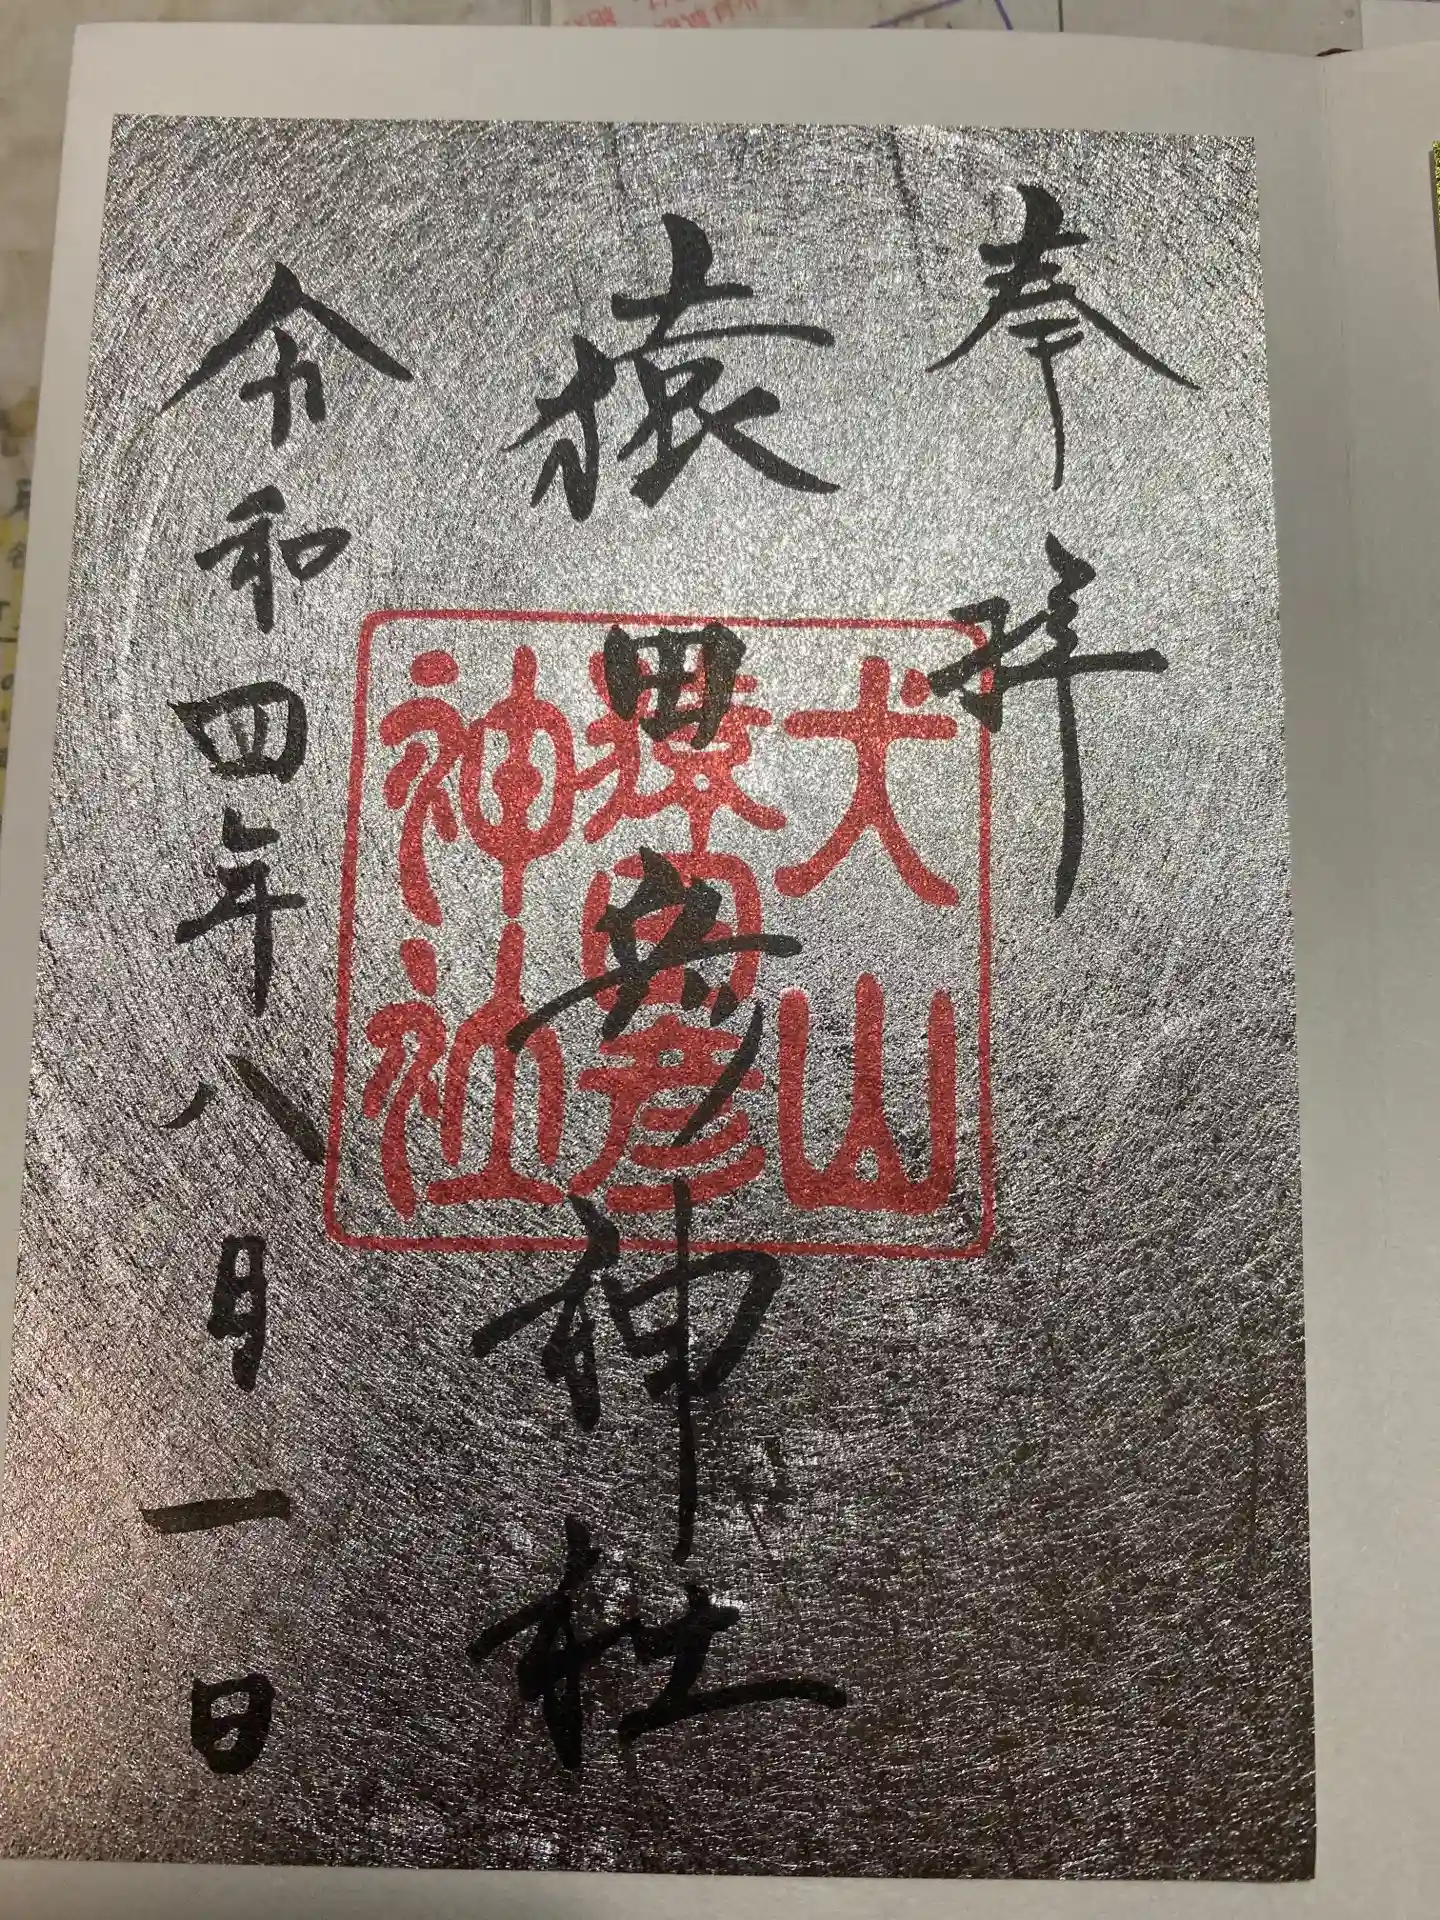 奉拝
猿田彦神社
犬山
猿田彦
神社
令和四年八月一日